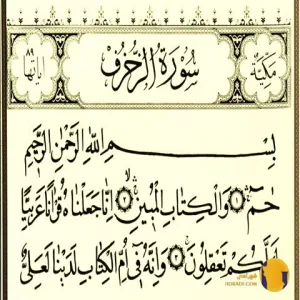 مكية
سورة الزخرف
اياتها ٨٩
بسم الله الرحمن الرحيم
حم ۝١ والكتاب المبين ۝٢ انا جعلناه قرانا عربيا
لعلكم تعقلون ۝٣ وانه في ام الكتاب لدينا لعلي